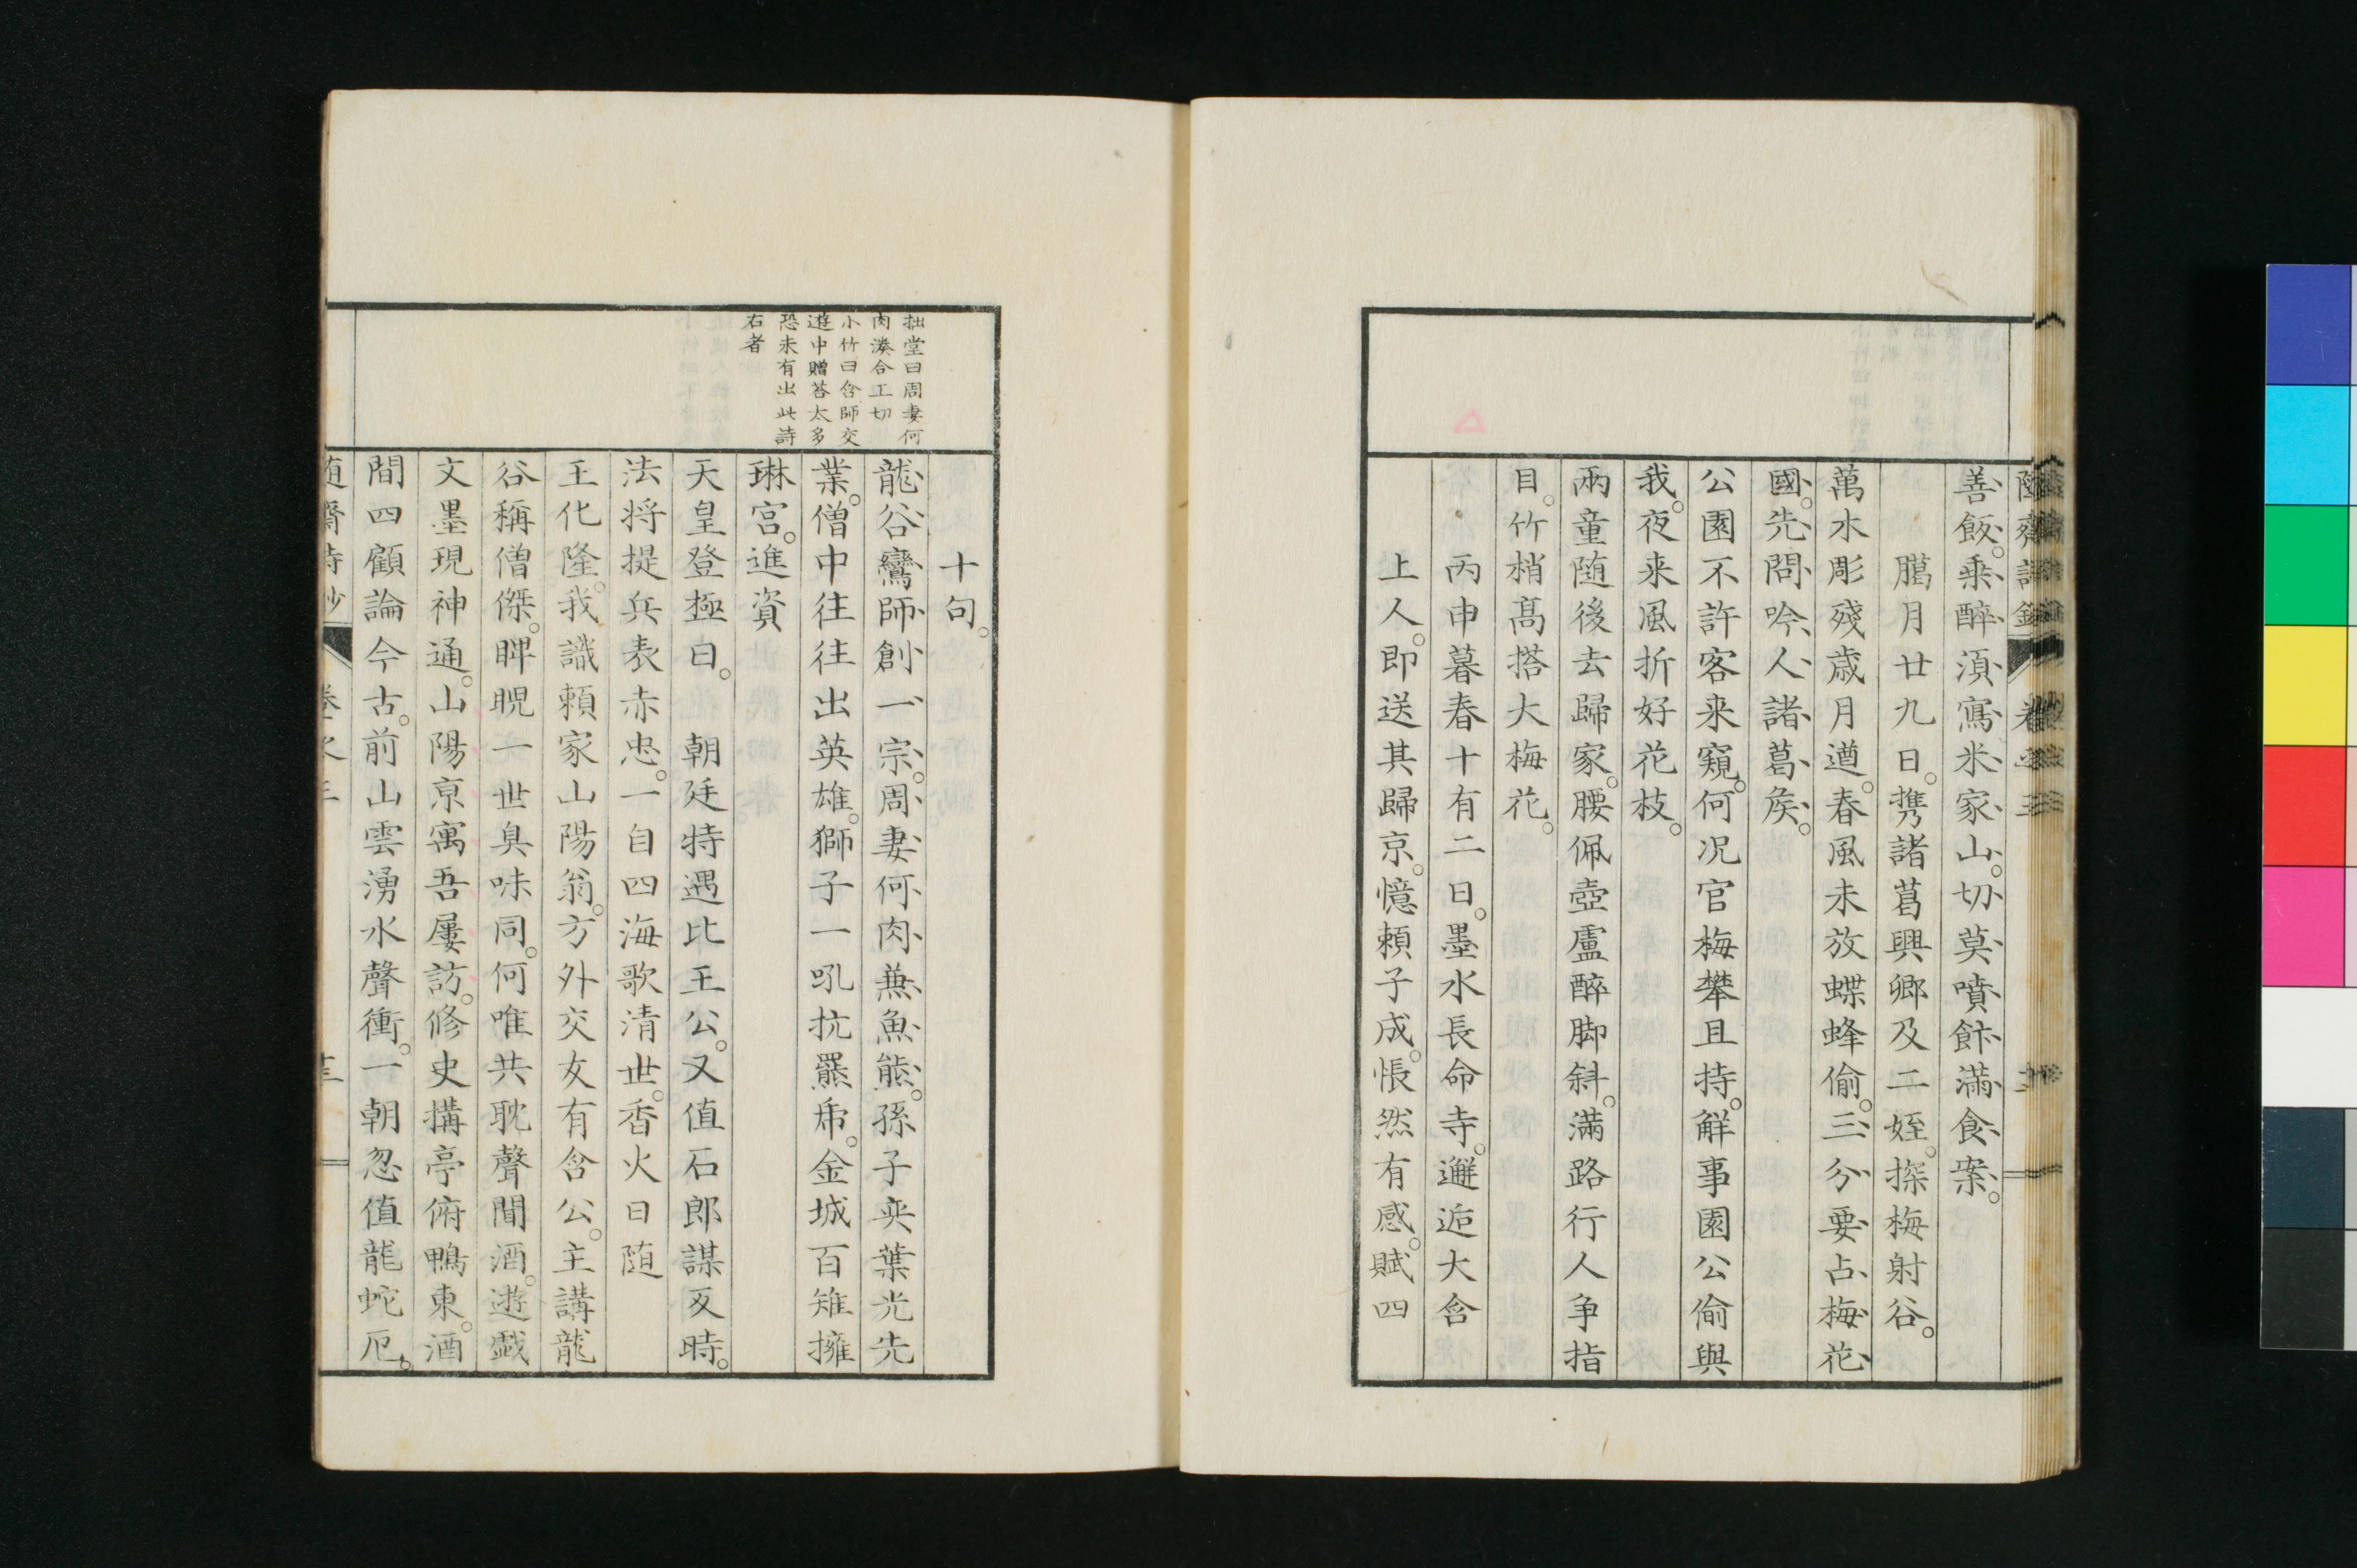 善飯。乘醉湏寫米家山。切莫噴飰滿食案。
臈月廿九日。携諸葛興卿及二姪。探梅射谷。
萬水彫殘歳月遒。春風未放蝶蜂偷。三分要占梅花
國。先問吟人諸葛矦。
公園不許客来窺。何况官梅攀且持。觧事園公偷與
我。夜来風折好花枝。
兩童随後去歸家。腰佩壺盧醉脚斜。滿路行人争指
目。竹梢髙搭大梅花。
丙申暮春十有二日。墨水長命寺。邂逅大含
上人。即送其歸京。憶賴子成。悵然有感。賦四
十句。
拙堂曰周妻何
肉湊合工切
小竹曰含師交
遊中贈荅太多
恐未有出此詩
右者
龍谷鸞師創一宗。周妻何肉兼魚熊。孫子奕葉光先
業。僧中往往出英雄。獅子一吼抗羆乕。金城百雉擁
琳宮。進資
天皇登極日。朝廷特遇比王公。又值石郎謀叐時。
法将提兵表赤忠。一自四海歌清世。香火日随
王化隆。我識賴家山陽翁。方外交友有含公。主講龍
谷稱僧傑。睥睨一世臭味同。何唯共耽聲聞酒。遊戯
文墨現神通。山陽亰寓吾屢訪。修史搆亭俯鴨東。酒
間四顧論今古。前山雲湧水聲衝。一朝忽值龍蛇厄。